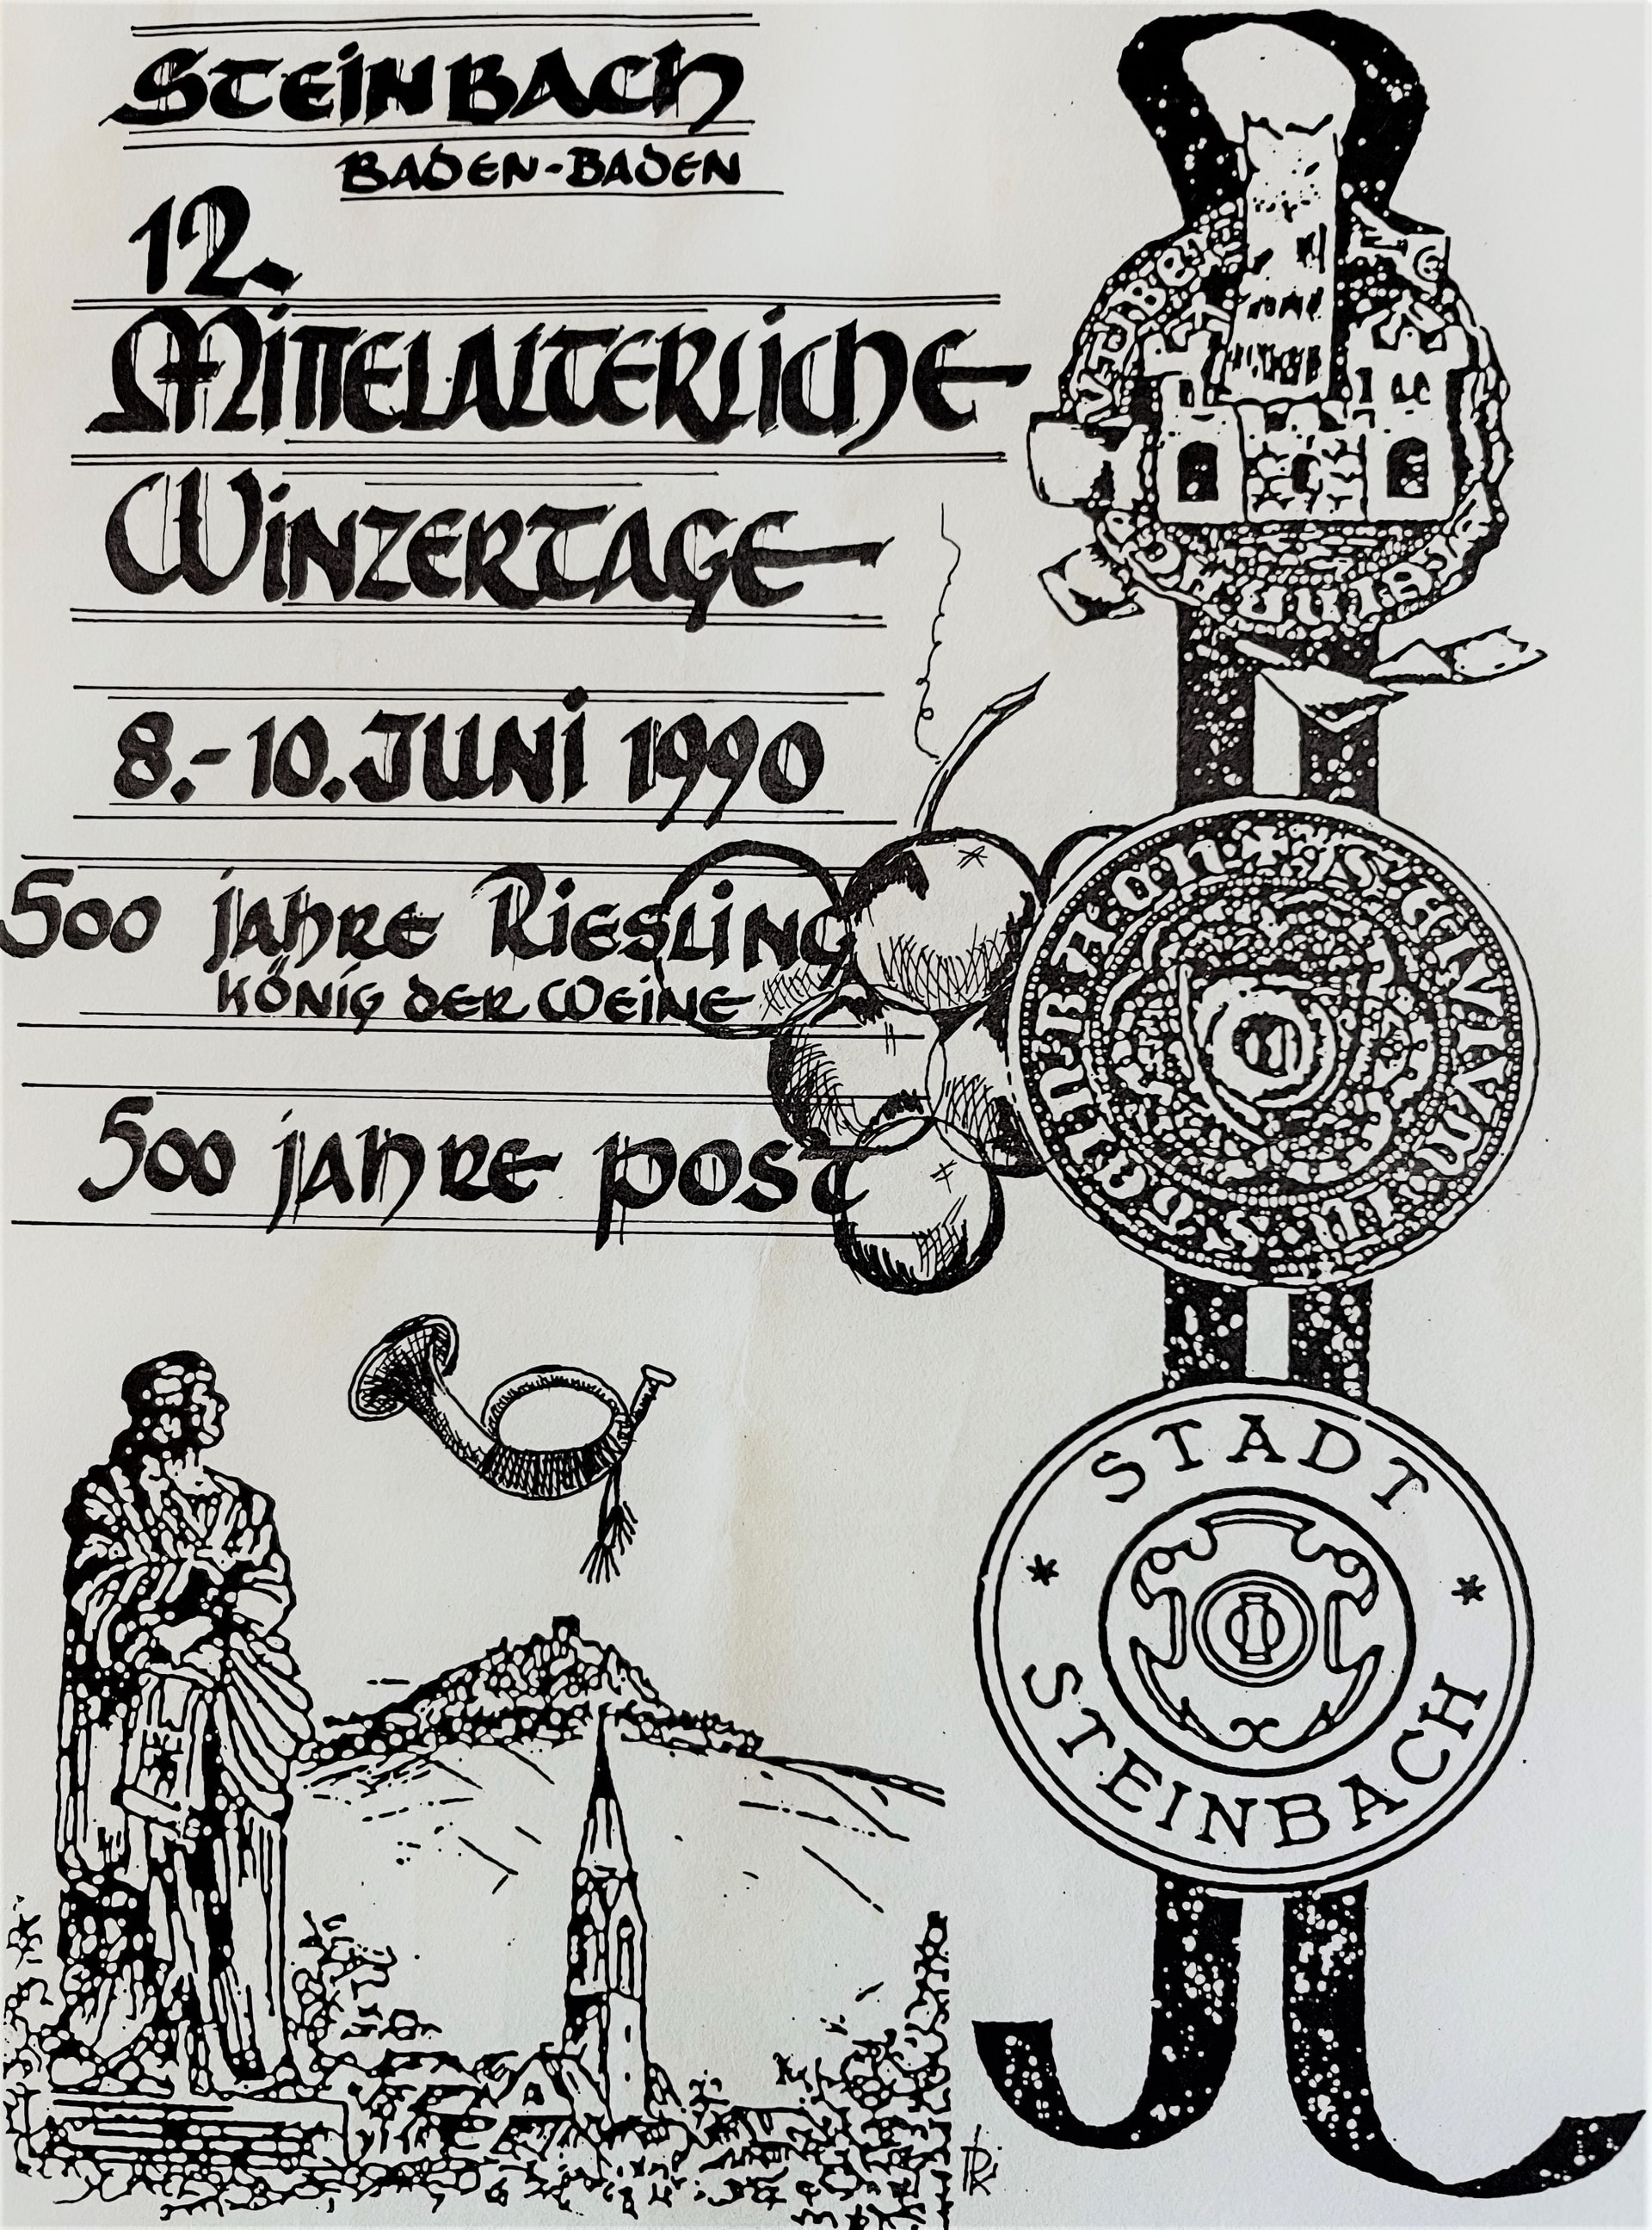 STEINBACH
BADEN-BADEN
12.
MITTELALTERLICHE
WINZERTAGE
8.-10. JUNI 1990
500 JAHRE RIESLING
KÖNIG DER WEINE
500 JAHRE POST
STADT
* *
STEINBACH